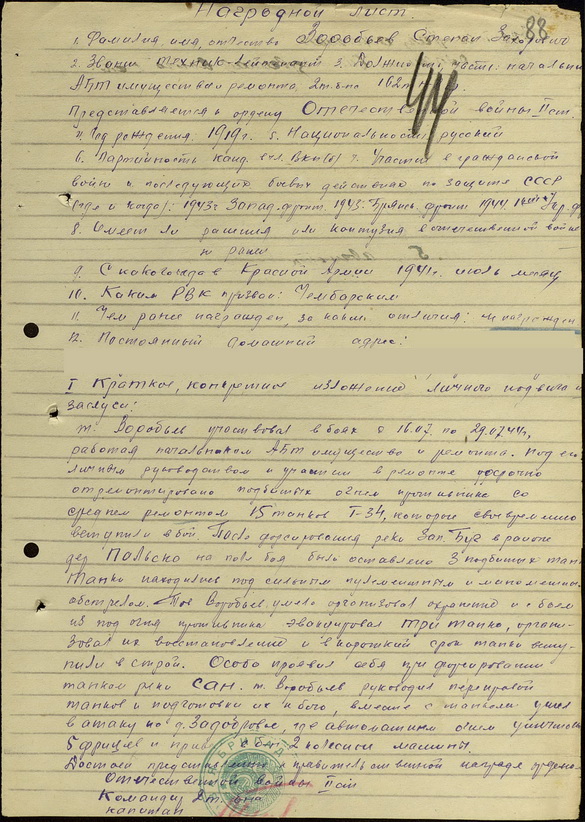 Наградной лист. 88
1. Фамилия, имя, отчество Воробьев Степан
2. Звание техник-лейтенант 3. Должность, часть: начальник
АБТ имущества и ремонта, 2 т. б-на
Представляется к ордену Отечественной войны II ст.
4. Год рождения. 1919г. 5. Национальность русский
6. Партийность канд. ВКП(б) 7. Участие в гражданской
войне и последующих боевых действиях по защите СССР
(где и когда): 1943г Запад. фронт 1943. Брянс. фронт 1944 1й Укр. ф
8. Имеет ли ранения или контузия в отечественной войне
не ранен
9. С какого года в Красной Армии 1941г. июль месяц
10. Каким РВК призван: Чембарским
11. Чем ранее награжден, за какие отличия: не награжден
12. Постоянный домашний адрес:
I Краткое, конкретное изложение личного подвига и
заслуг:
т. Воробьев участвовал в боях с 16.07. по 29.07.44г,
работая начальником АБТ имущества и ремонта. Под его
личным руководством и участии в ремонте досрочно
отремонтировано подбитых огнем противника со
средним ремонтом 15 танков Т-34, которые своевременно
вступили в бой. После форсирования реки Зап. Буг в районе
дер Польско на поле боя было оставлено 3 подбитых танка
Танки находились под сильным пулеметным и минометным
обстрелом. Тов Воробьев умело организовал охранение и с боем
из под огня противника эвакуировал три танка, органи-
зовал их восстановление и в короткий срок танки всту-
пили в строй. Особо проявил себя при форсировании
танком реки Сан. т. Воробьев руководил переправой
танков и подготовки их к бою, вместе с танками ушел
в атаку на д. Задобровье, где автоматным огнем уничтожил
5 фрицев и 2 колесной машины.
Достоен представления к правительственной награде ордена
Отечественной войны II ст
Командир 2 т. б-на
капитан